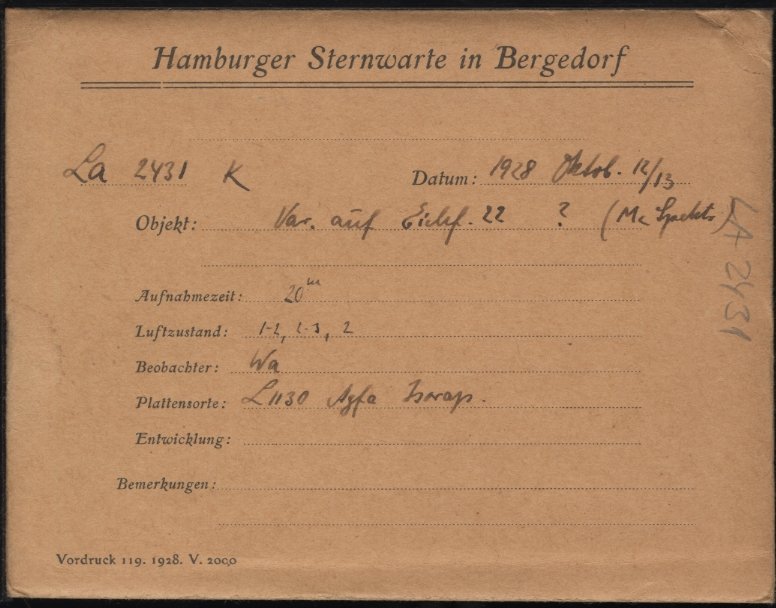 Hamburger Sternwarte in Bergedorf
La 2431 K
Datum: 1928 Oktob. 12/13
Objekt: Var. auf Eichf. 22 ? (Mc
Aufnahmezeit: 20m
Luftzustand: 1-2, 2-3, 2
Beobachter: Wa
Plattensorte: L1130 Agfa Isorap.
Entwicklung:
Bemerkungen:
Vordruck 119. 1928. V. 2000
LA 2431